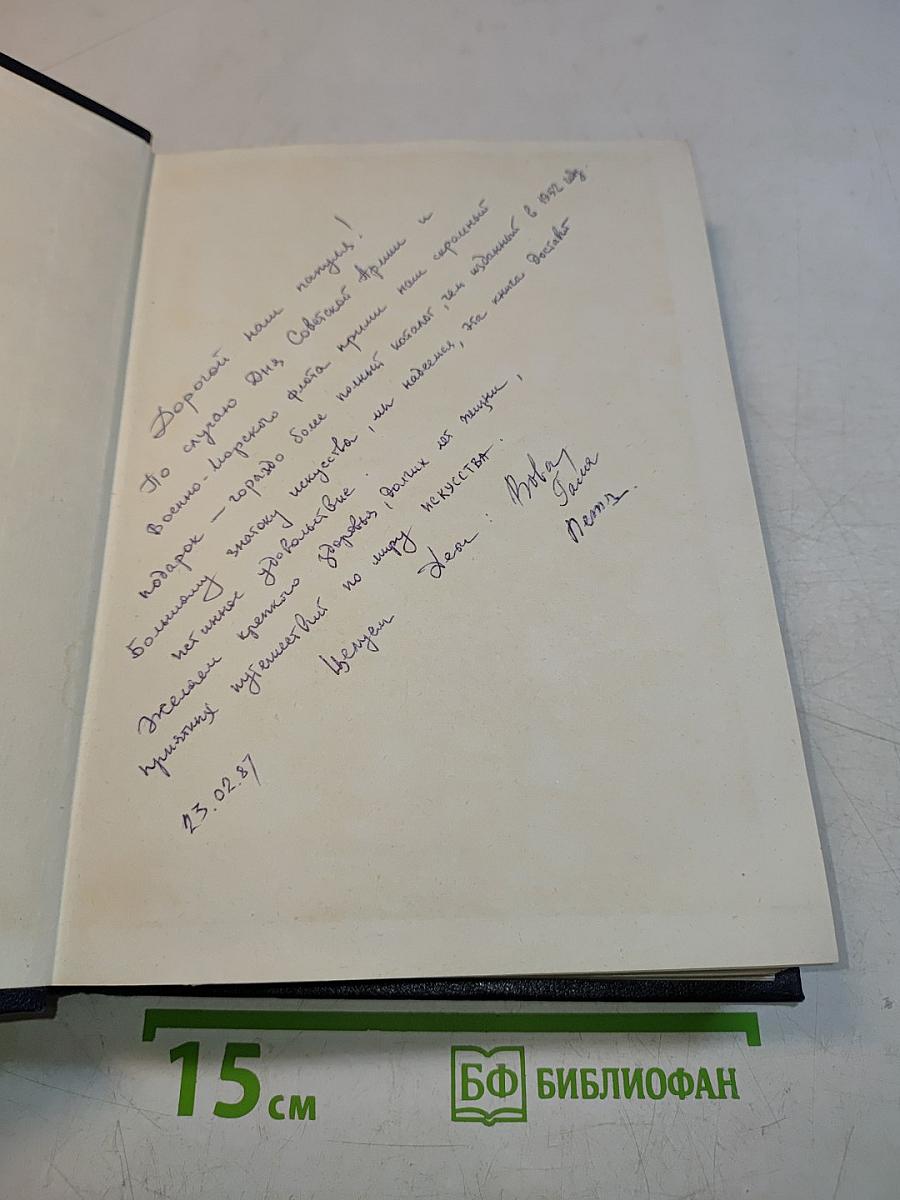 Дорогой наш папуля!
По случаю Дня Советской Армии и
Военно-Морского флота прими наш скромный
подарок — гораздо более полный каталог, чем изданный в 1952 году.
Большому знатоку искусства, мы надеемся, эта книга доставит
истинное удовольствие.
Желаем крепкого здоровья, долгих лет жизни,
приятных путешествий по миру искусства.
Целуем
Вова,
Галя
Петя.
23.02.87
15 см
БФ БИБЛИОФАН